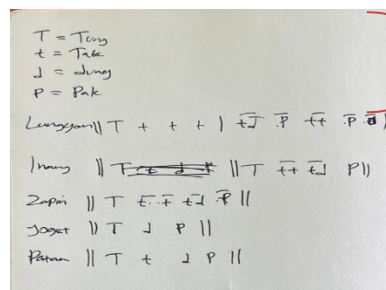 T = Tung
t = Tak
d = dung
P = Pak
Langgam || T t t t | td .P tt .P d
Inang || T tt td P ||
Zapin || T t..t td .P ||
Joget || T d P ||
Patam || T t d P ||